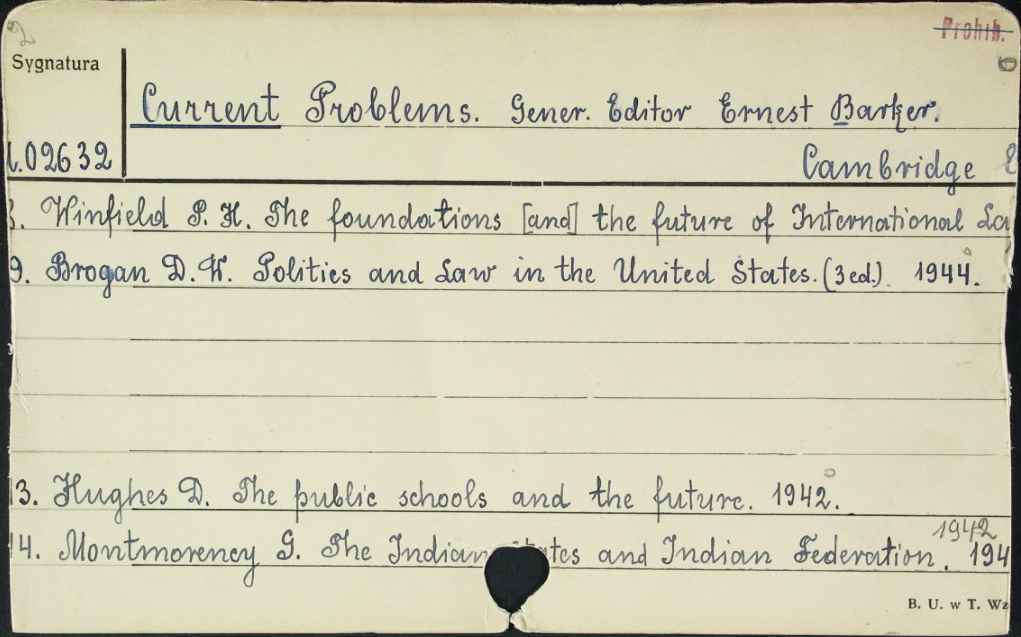 2
Prohib.
Sygnatura
Current Problems. Gener. Editor Ernest Barker.
.02632
Cambridge
3. Winfield P. H. The foundations [and] the future of International La
9. Brogan D. W. Politics and Law in the United States. (3 ed.). 1944.
13. Hughes D. The public schools and the future. 1942.
1942
14. Montmorency G. The Indian tes and Indian Federation. 194
B. U. w T. Wz